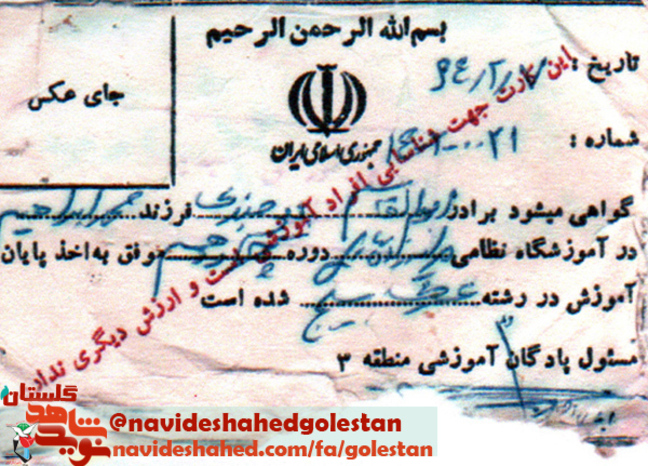 بسم الله الرحمن الرحیم
جمهوری اسلامی ایران
جای عکس
تاریخ :
شماره :
گواهی میشود برادر ابوالقاسم فرزند محمدابراهیم
در آموزشگاه نظامی دوره موفق به اخذ پایان
آموزش در رشته شده است
مسئول پادگان آموزشی منطقه ۳
این کارت جهت شناسایی افراد آموزشی است و ارزش دیگری ندارد
گلستان
نوید شاهد
@navideshahedgolestan
navideshahed.com/fa/golestan